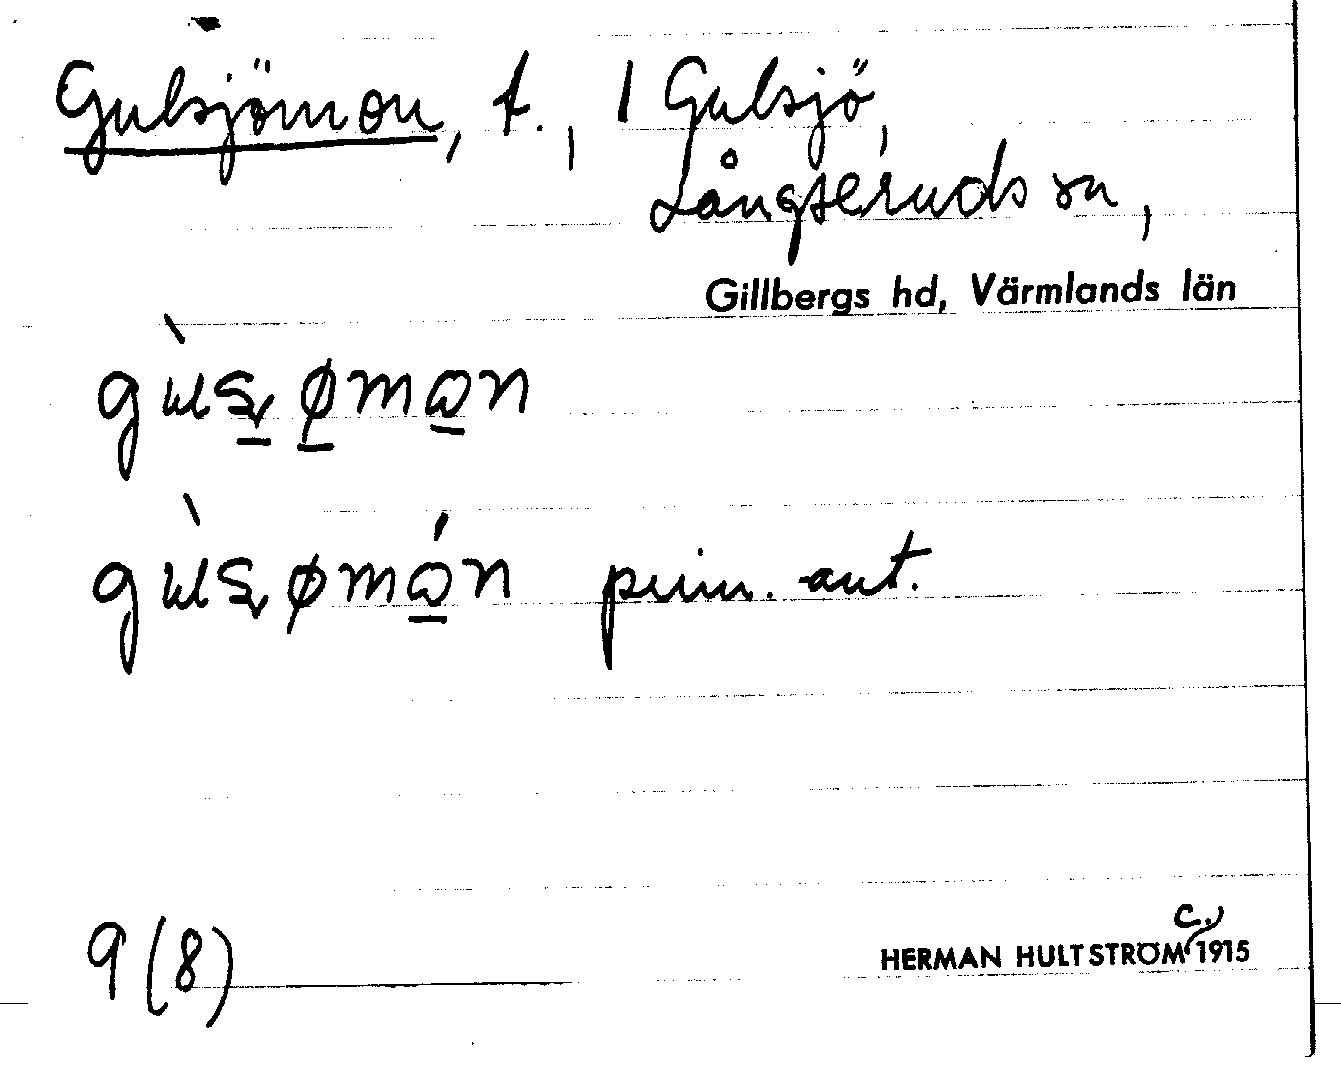 Gulsjömon, t., 1 Gulsjö,
Långseruds sn,
Gillbergs hd, Värmlands län
prim. ant.
9 (8)
HERMAN HULTSTRÖM c. 1915